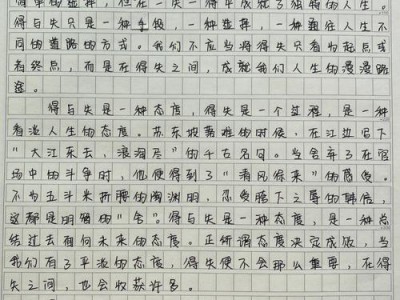 简单的选择，但在一失一得中成就了独特的人生。
得与失只是一种手段，一种选择，一种通往人生不
同的道路的方式。我们不应当将得失只看为起点或
者终点，而是在得失之间，成就我们人生的漫漫路
途。
得与失是一种态度，得失是一个过程，是一种
看淡人生的态度。苏东坡落难的时候，在江边写下
“大江东去，浪淘尽”的千古名句。当舍弃了在官
场中的斗争时，他便得到了“清风徐来”的
不为五斗米折腰的陶渊明，忍受胯下之辱的韩信，
这都是明智的“舍”。得与失是一种态度，是一种总
结过去有何未来的态度。正所谓态度决定成败，当
我们有了平淡的态度，得失便不会那么重要，在得
失之间，也会收获许多。